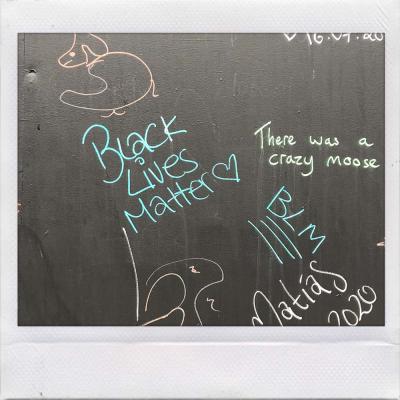 16.07.20
Black
Lives
Matter♡
There was a
crazy moose
BLM
Matiás
2020